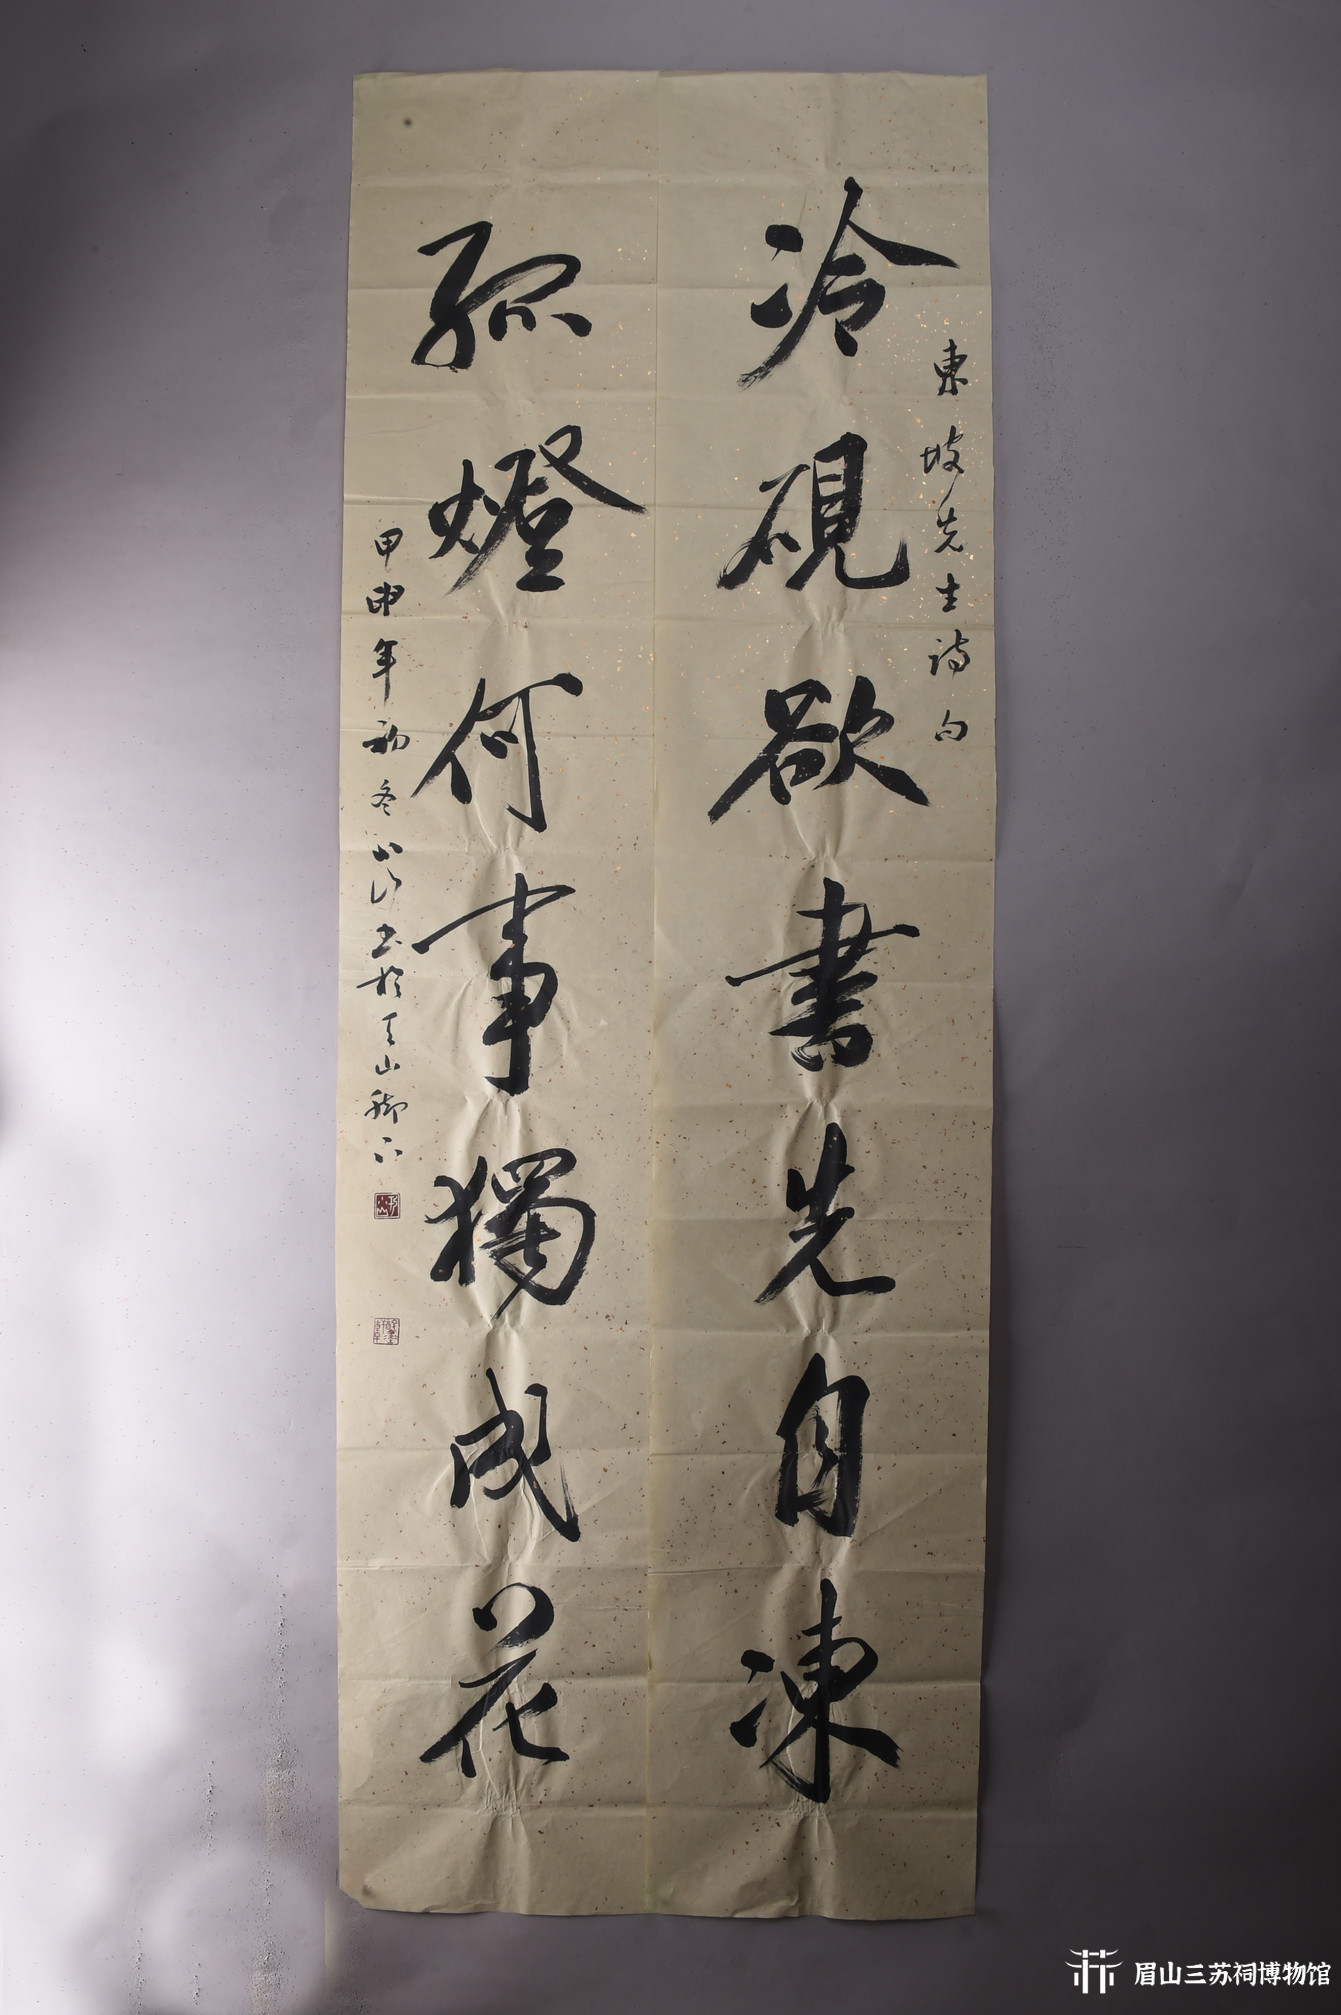 東坡先生詩句
冷硯欲書先自凍
孤燈何事獨成花
甲申年初冬山书於天山脚下
眉山三苏祠博物馆